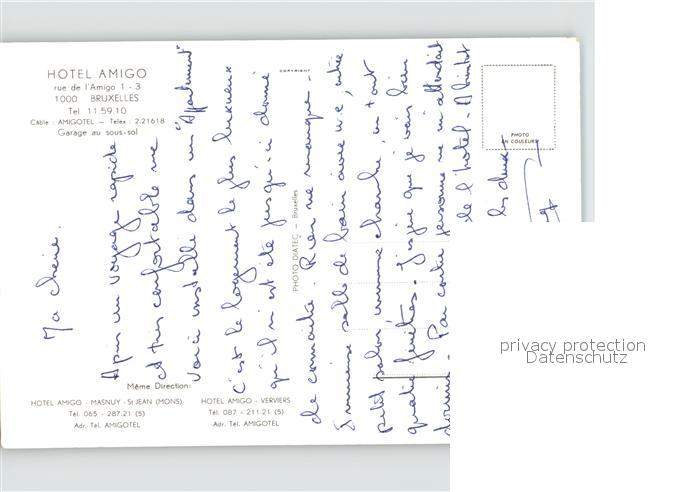 HOTEL AMIGO
rue de l'Amigo 1 - 3
1000 BRUXELLES
Tel. 11.59.10
Câble : AMIGOTEL — Telex : 2.21618
Garage au sous-sol
COPYRIGHT
PHOTO
EN COULEURS
PHOTO-DIATEC — Bruxelles
Ma chérie.
Après un voyage rapide
et très confortable me
voici installé dans un "Appartement"
C'est le logement le plus luxueux
qu'il m'est été jusqu'ici donné
de connaître. Rien ne manque -
Immense salle de bain avec w.c,
petit salon, immense chambre, en tout
quatre fenêtres. J'espère que je vais bien
dormir. Par contre personne ne m'attendait
l'hôtel. A bientôt
les deux
Même Direction:
HOTEL AMIGO - MASNUY - St JEAN (MONS)
Tél. 065 - 287.21 (5)
Adr. Tél. AMIGOTEL
HOTEL AMIGO - VERVIERS
Tél. 087 - 211.21 (5)
Adr. Tél. AMIGOTEL
privacy protection
Datenschutz